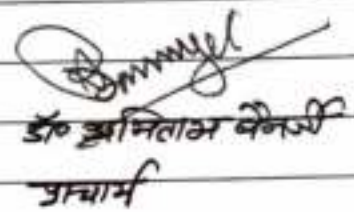 डॉ० अमिताभ बैनर्जी
प्राचार्य